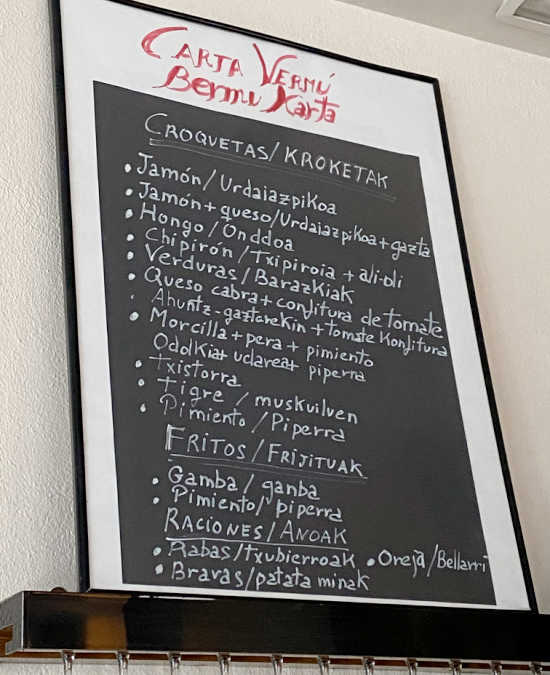 CARTA VERMÚ
Bermu Karta
CROQUETAS/KROKETAK
• Jamón/Urdaiazpikoa
• Jamón+queso/Urdaiazpikoa+gazta
• Hongo/Onddoa
• Chipirón/Txipiroia + ali-oli
• Verduras/Barazkiak
• Queso cabra+confitura de tomate
• Ahuntz-gaztarekin+tomate Konfitura
• Morcilla+pera+pimiento
Odolkia+udarea+piperra
• Txistorra
• Tigre/muskuilven
• Pimiento/Piperra
FRITOS/FRIJITUAK
• Gamba/ganba
• Pimiento/piperra
RACIONES/ANOAK
• Rabas/txubierroak • Oreja/Belarri
• Bravas/patata minak